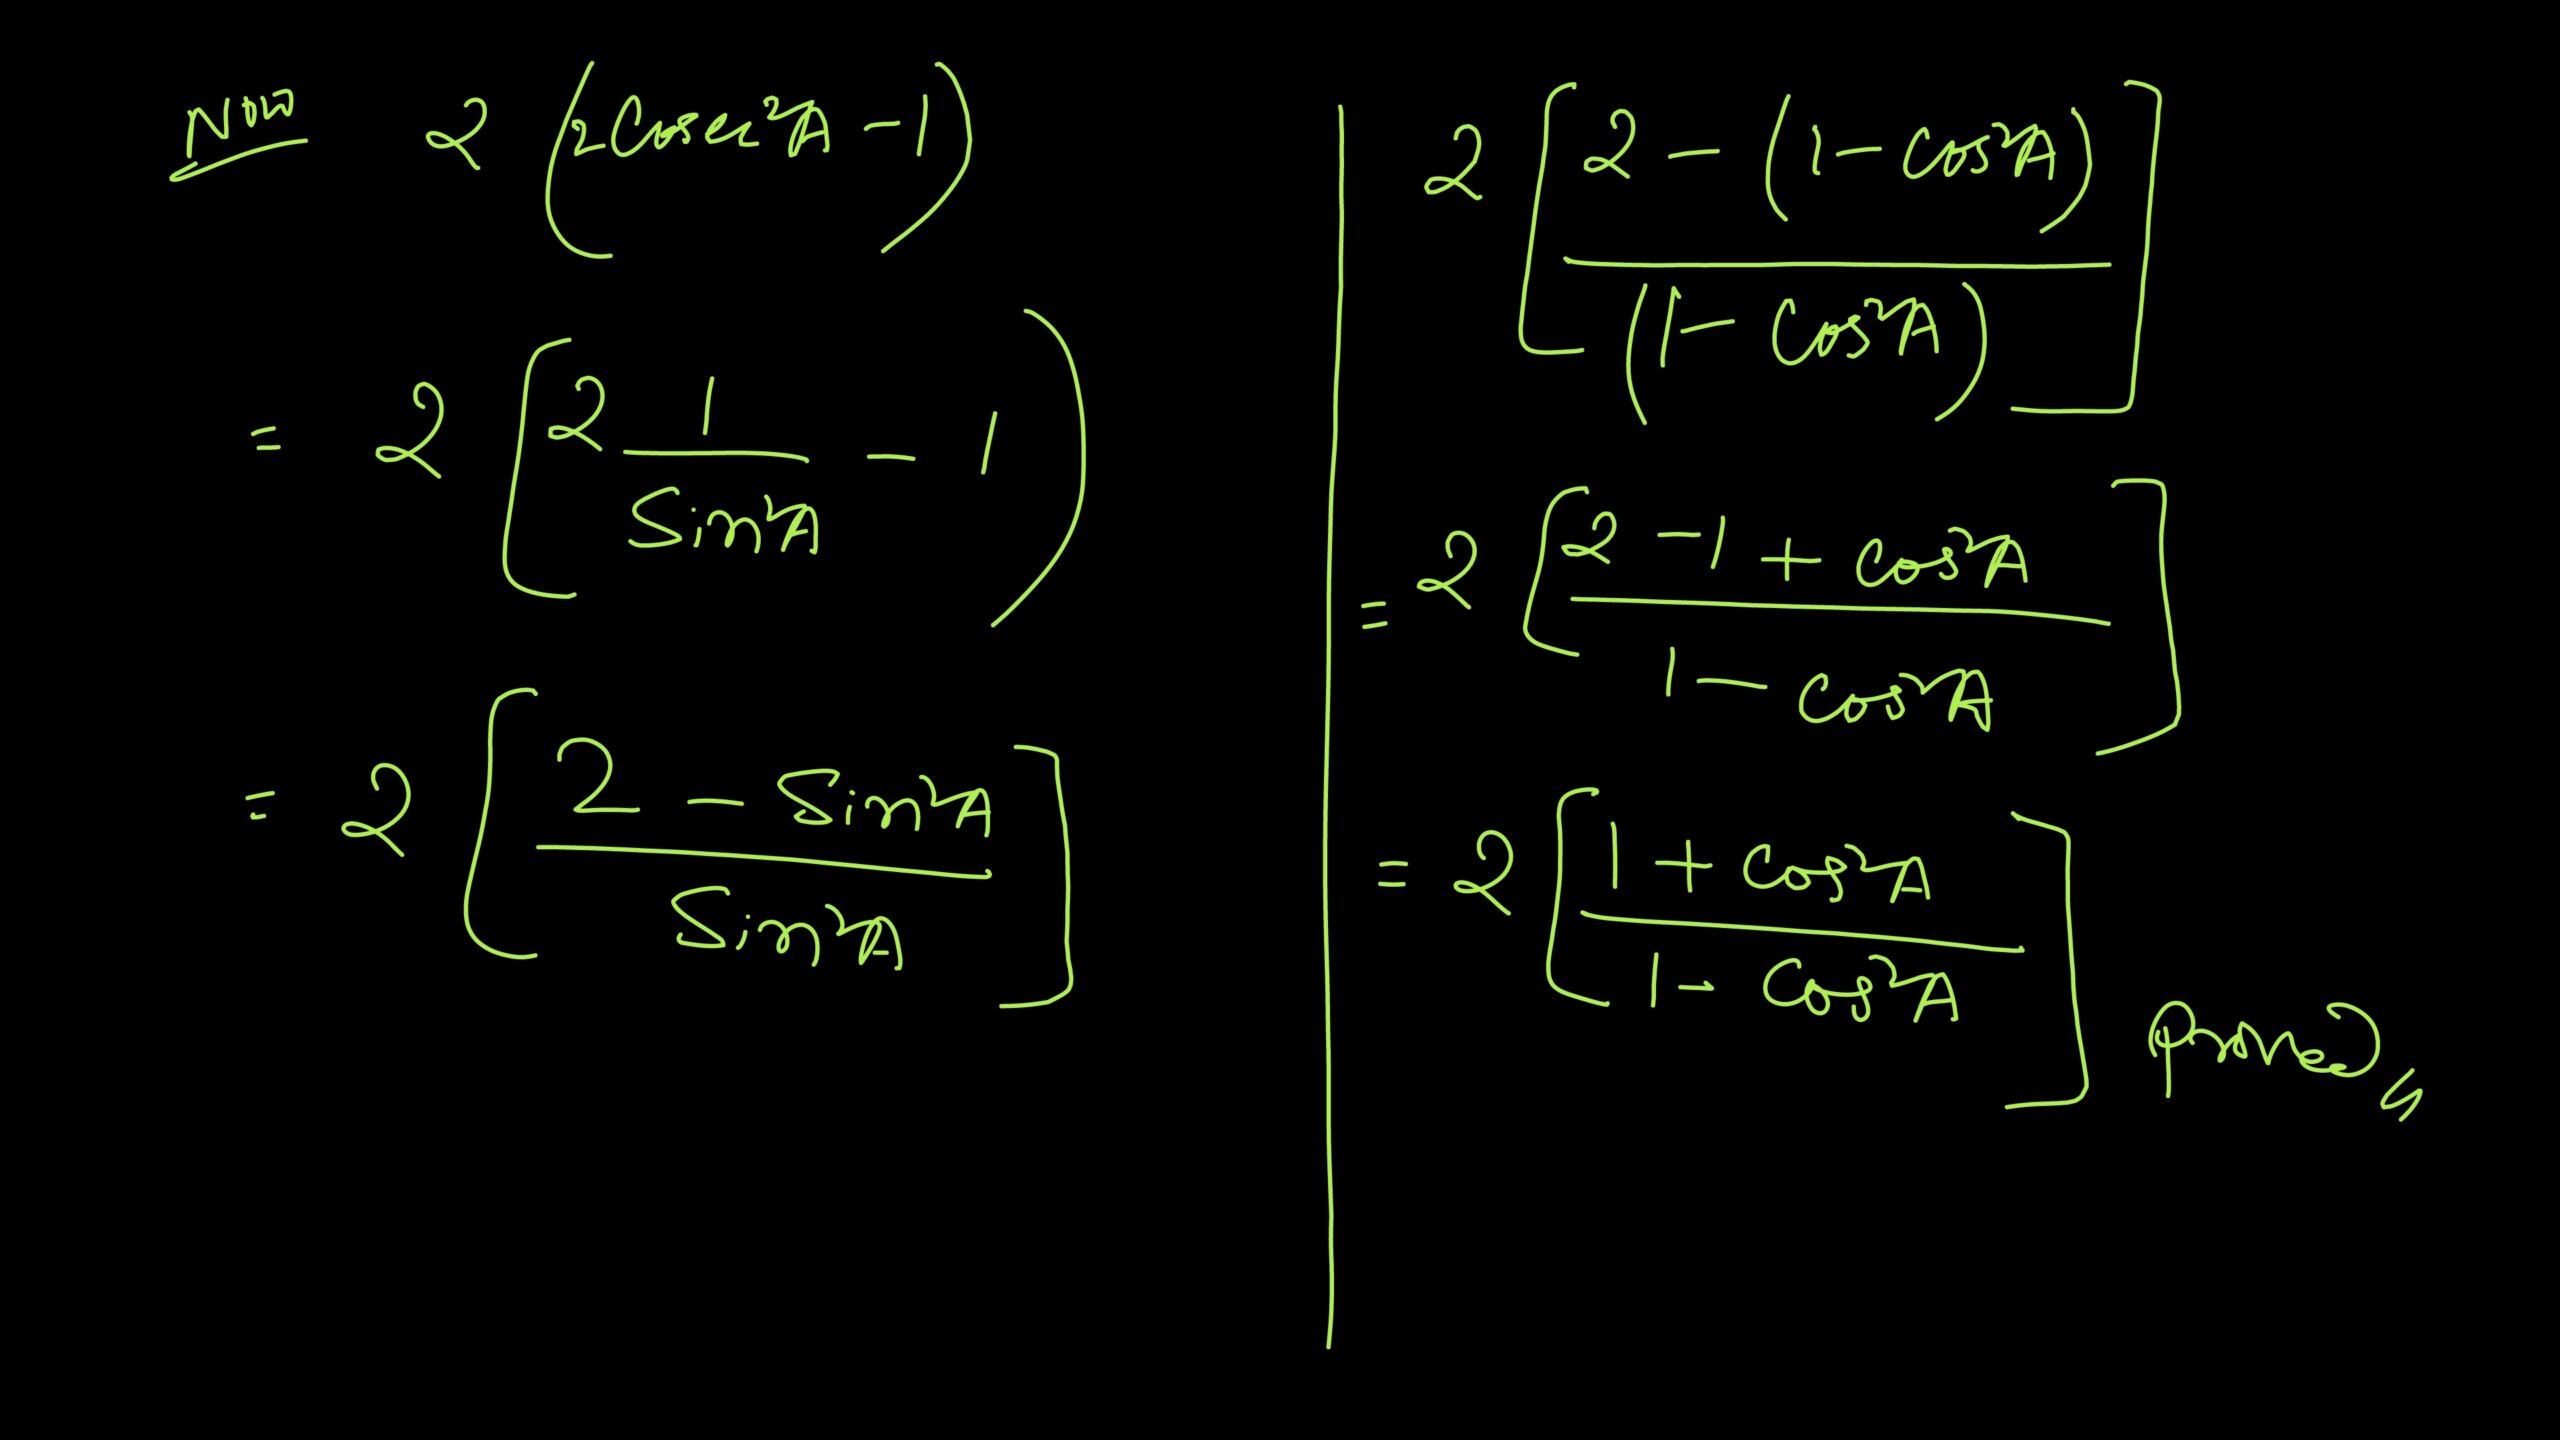 Now 2 (2Cosec²A - 1)
= 2 [2 1/Sin²A - 1)
= 2 [2 - Sin²A / Sin²A]
2 [2 - (1 - Cos²A) / (1 - Cos²A)]
= 2 [2 - 1 + Cos²A / 1 - Cos²A]
= 2 [1 + Cos²A / 1 - Cos²A] Proved